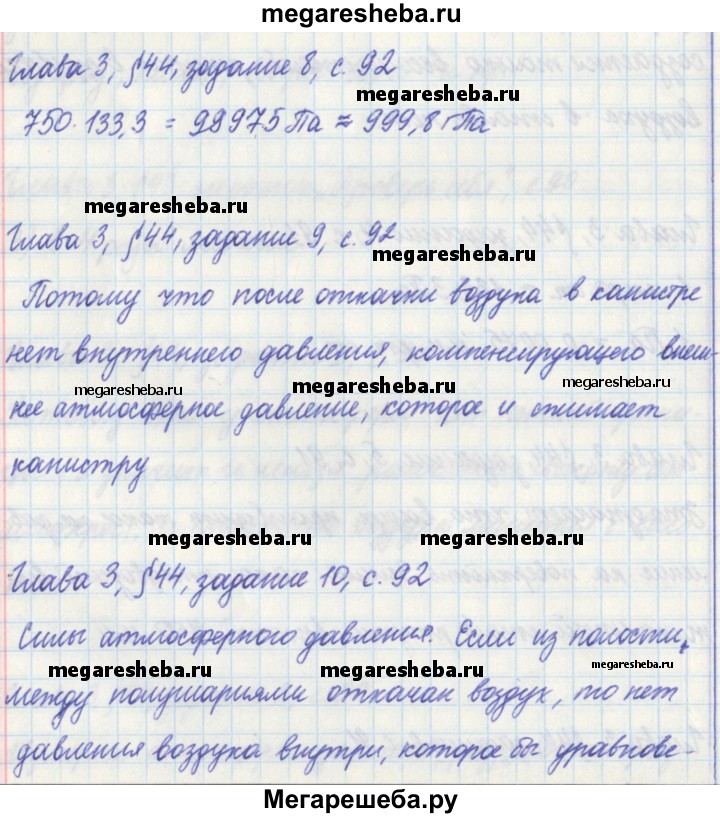 megaresheba.ru
Глава 3, §44, задание 8, с. 92
megaresheba.ru
750·133,3 = 99975 Па ≈ 999,8 гПа
megaresheba.ru
Глава 3, §44, задание 9, с. 92
megaresheba.ru
Потому что после откачки воздуха в канистре
нет внутреннего давления, компенсирующего внеш-
megaresheba.ru megaresheba.ru megaresheba.ru
нее атмосферное давление, которое и сжимает
канистру
megaresheba.ru megaresheba.ru
Глава 3, §44, задание 10, с. 92
Силы атмосферного давления. Если из полости,
megaresheba.ru megaresheba.ru megaresheba.ru
между полушариями откачан воздух, то нет
давления воздуха внутри, которое бы уравнове-
Мегарешеба.ру